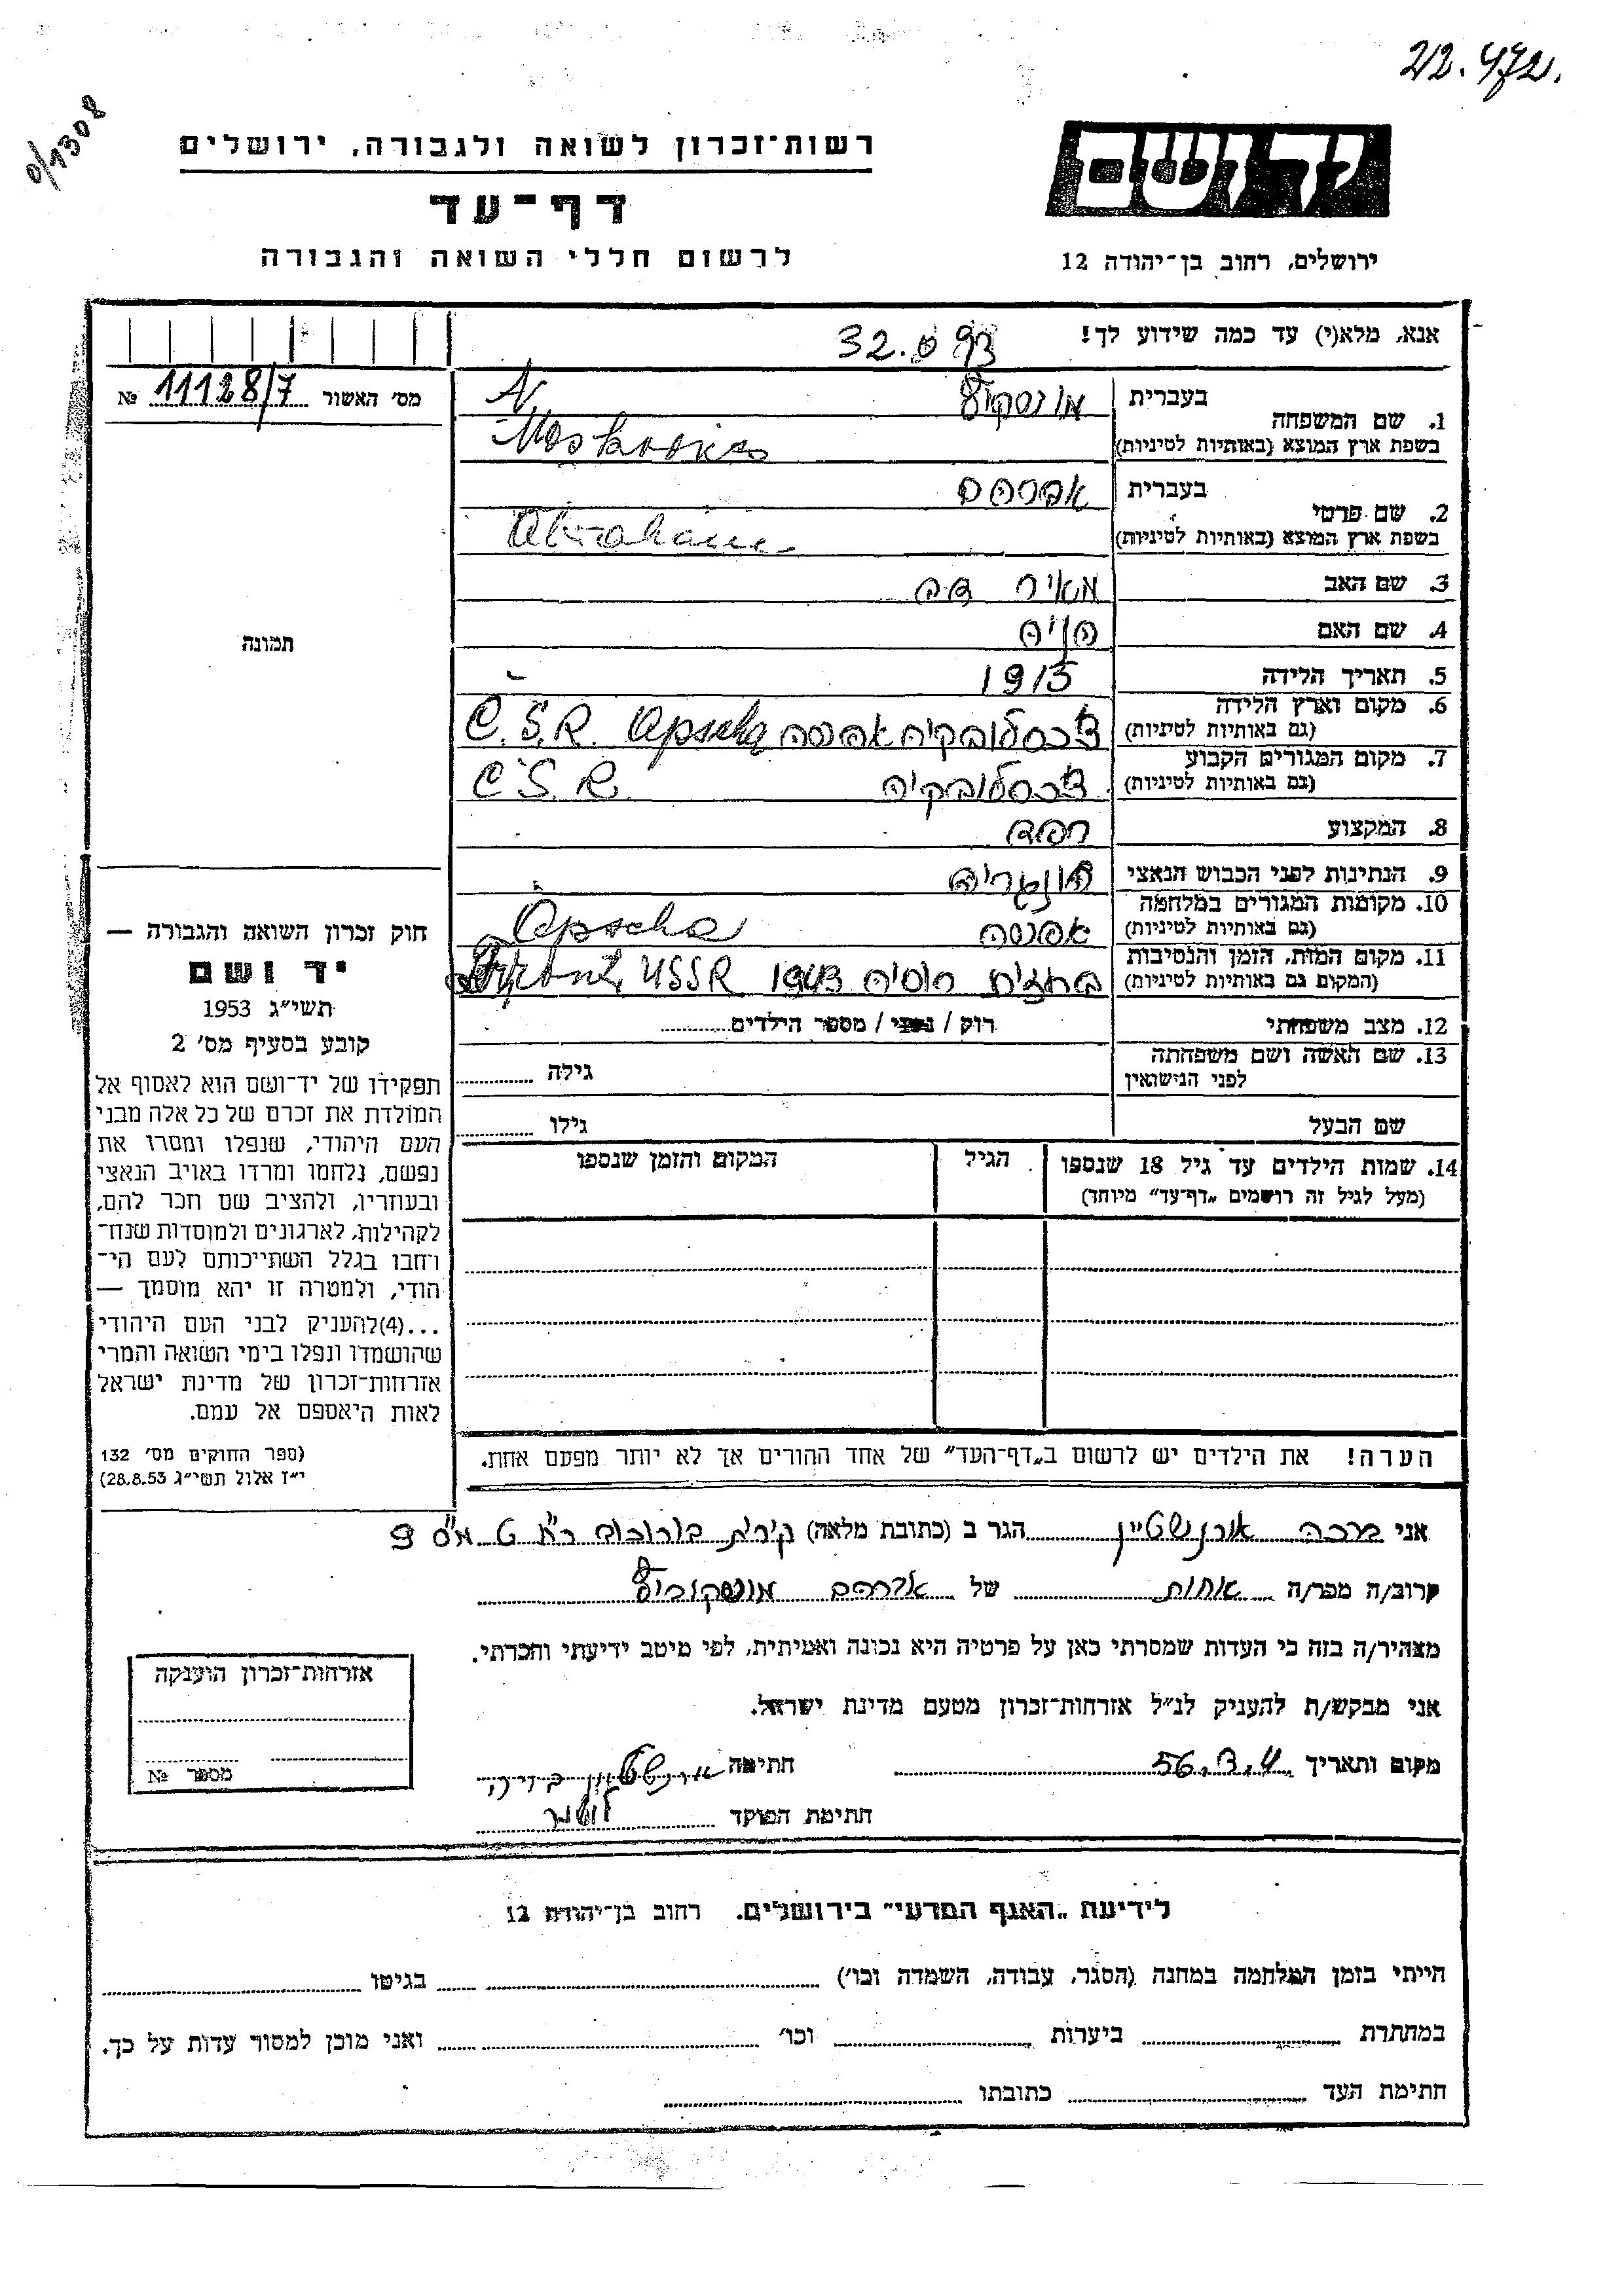 22.472.
0/1308
יד ושם
רשות־זכרון לשואה ולגבורה, ירושלים
דף־עד
לרשום חללי השואה והגבורה
ירושלים, רחוב בן־יהודה 12
אנא, מלא(י) עד כמה שידוע לך!
מס׳ האשור 11128/7 №
1. שם המשפחה
בעברית
בשפת ארץ המוצא (באותיות לטיניות)
2. שם פרטי
בעברית אברהם
בשפת ארץ המוצא (באותיות לטיניות) Abraham
3. שם האב מאיר דב
4. שם האם חיה
5. תאריך הלידה 1915
6. מקום וארץ הלידה
(גם באותיות לטיניות) צ׳כסלובקיה אפשה Apscha C.S.R.
7. מקום המגורים הקבוע
(גם באותיות לטיניות) צ׳כסלובקיה C.S.R.
8. המקצוע רפד
9. הנתינות לפני הכבוש הנאצי הונגריה
10. מקומות המגורים במלחמה
(גם באותיות לטיניות) אפשה Apscha
11. מקום המות, הזמן והנסיבות
(המקום גם באותיות לטיניות) בחזית רוסיה 1943 USSR
12. מצב משפחתי רוק / נשוי / מספר הילדים
13. שם האשה ושם משפחתה
לפני הנישואין
גילה
שם הבעל
גילו
14. שמות הילדים עד גיל 18 שנספו
(מעל לגיל זה רושמים „דף־עד״ מיוחד)
הגיל
המקום והזמן שנספו
הערה! את הילדים יש לרשום ב„דף־העד״ של אחד ההורים אך לא יותר מפעם אחת.
תמונה
חוק זכרון השואה והגבורה —
יד ושם
תשי״ג 1953
קובע בסעיף מס׳ 2
תפקידו של יד־ושם הוא לאסוף אל
המולדת את זכרם של כל אלה מבני
העם היהודי, שנפלו ומסרו את
נפשם, נלחמו ומרדו באויב הנאצי
ובעוזריו, ולהציב שם וזכר להם,
לקהילות, לארגונים ולמוסדות שנח־
רחבו בגלל השתייכותם לעם הי־
הודי, ולמטרה זו יהא מוסמך —
...(4)להעניק לבני העם היהודי
שהושמדו ונפלו בימי השואה והמרי
אזרחות־זכרון של מדינת ישראל
לאות היאספם אל עמם.
(ספר החוקים מס׳ 132
י״ז אלול תשי״ג 28.8.53)
אני ברכה אורנשטיין הגר ב (כתובת מלאה)
קרוב/ה מכר/ה אחות של אברהם מושקוביץ
מצהיר/ה בזה כי העדות שמסרתי כאן על פרטיה היא נכונה ואמיתית, לפי מיטב ידיעתי והכרתי.
אני מבקש/ת להעניק לנ״ל אזרחות־זכרון מטעם מדינת ישראל.
מקום ותאריך 4.3.56 חתימה
חתימת הפוקד
אזרחות־זכרון הוענקה
מספר №
לידיעת „האגף המדעי״ בירושלים. רחוב בן־יהודה 12
הייתי בזמן המלחמה במחנה (הסגר, עבודה, השמדה וכו׳) בגיטו
במחתרת ביערות וכו׳ ואני מוכן למסור עדות על כך.
חתימת העד כתובתו